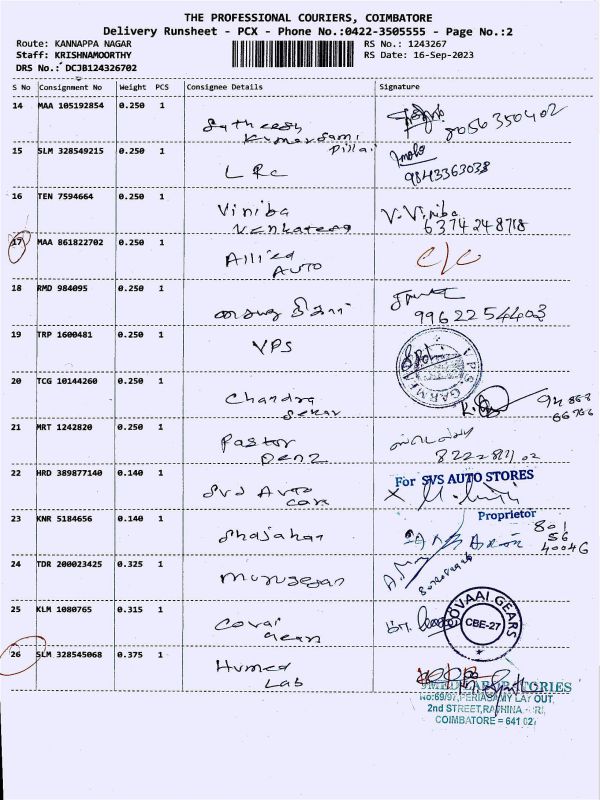 THE PROFESSIONAL COURIERS, COIMBATORE
Delivery Runsheet - PCX - Phone No.:0422-3505555 - Page No.:2
Route: KANNAPPA NAGAR
RS No.: 1243267
Staff: KRISHNAMOORTHY
RS Date: 16-Sep-2023
DRS No.: DCJB124326702
S No Consignment No Weight PCS Consignee Details Signature
14 MAA 105192854 0.250 1
Satheesh
Kumarsami
Pillai
8056350402
15 SLM 328549215 0.250 1
LRC
9843363038
16 TEN 7594664 0.250 1
Viniba
Venkatesa
V. Viniba
6374248718
17 MAA 861822702 0.250 1
Allied
AUTO
C/C
18 RMD 984095 0.250 1
9962254403
19 TRP 1600481 0.250 1
VPS
VPS GARM
20 TCG 10144260 0.250 1
Chandra
Sekar
21 MRT 1242820 0.250 1
Pastor
22 HRD 389877140 0.140 1
SVS Auto
Care
For SVS AUTO STORES
X
Proprietor
23 KNR 5184656 0.140 1
Shajahan
801
56
40046
24 TDR 200023425 0.325 1
Murugesan
25 KLM 1080765 0.315 1
Covai
Gears
KOVAAI GEARS
CBE-27
26 SLM 328545068 0.375 1
Humed
Lab
No:69/97, PERIASAMY LAY OUT,
2nd STREET,
COIMBATORE = 641 027